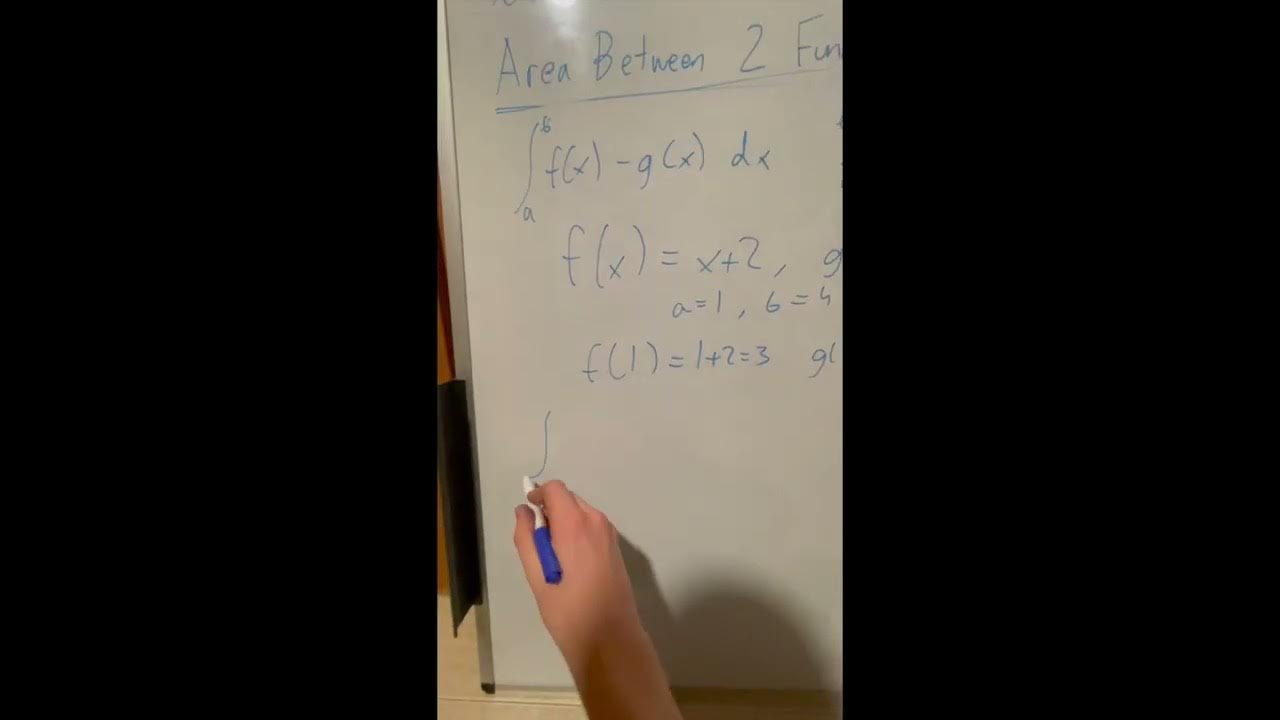 Area Between 2 Fun
∫ₐᵇ f(x) - g(x) dx
f(x) = x+2, g
a=1, b=4
f(1) = 1+2=3 g(
∫